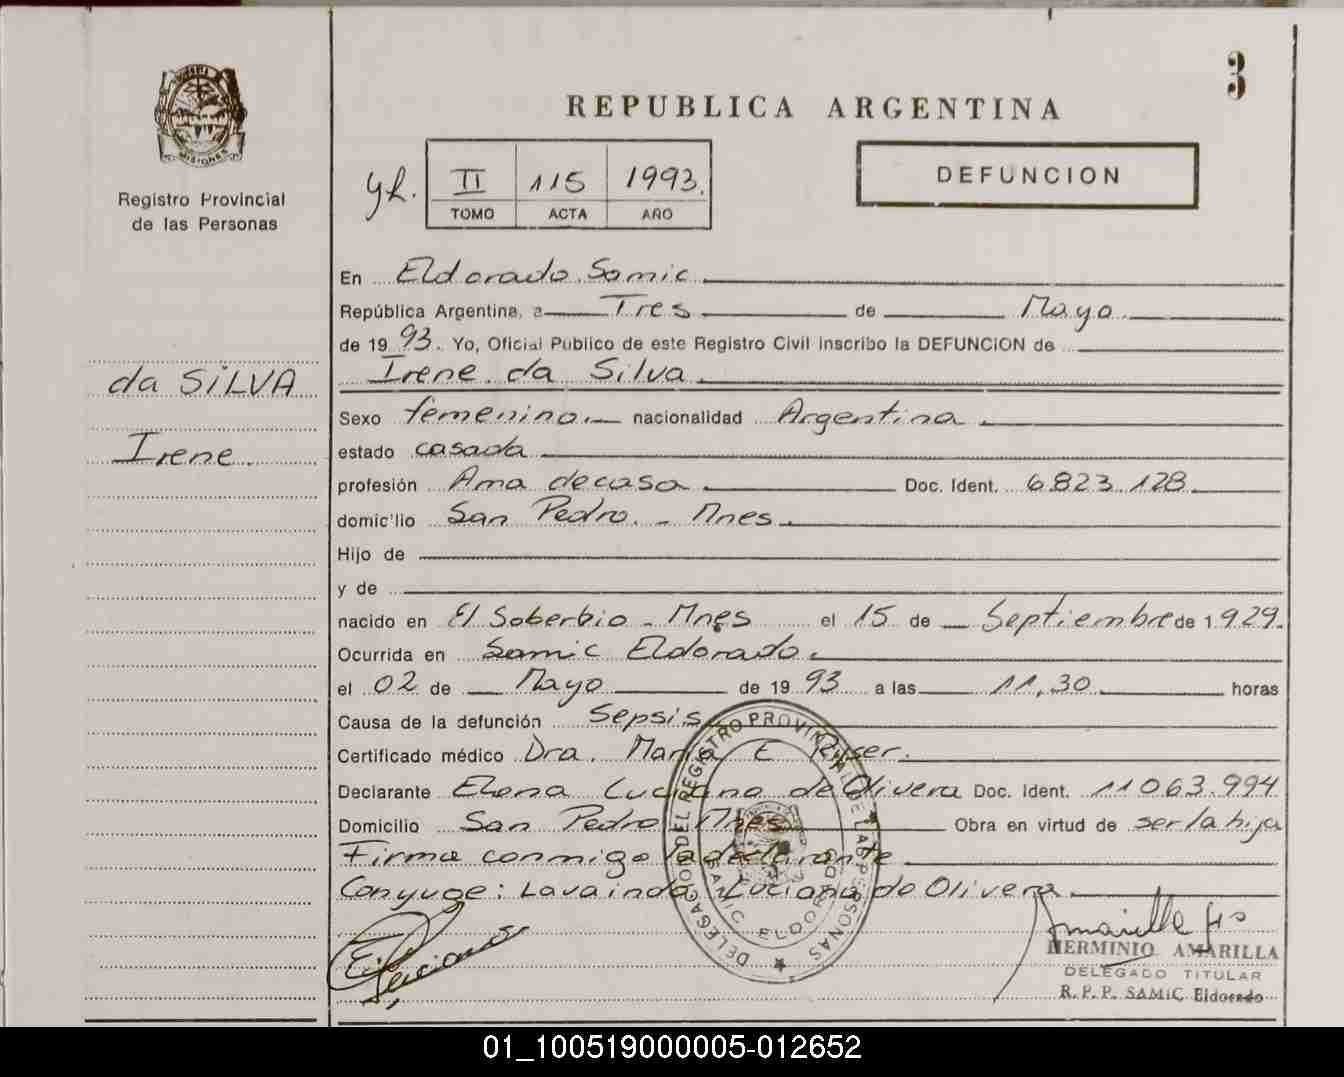 3
MISIONES
REPUBLICA ARGENTINA
Registro Provincial
de las Personas
II 115 1993.
TOMO ACTA AÑO
DEFUNCION
da SILVA
Irene
En Eldorado Samic
República Argentina, a Tres de Mayo
de 1993. Yo, Oficial Publico de este Registro Civil inscribo la DEFUNCION de
Irene da Silva
Sexo femenino. nacionalidad Argentina
estado casada
profesión Ama de casa Doc. Ident. 6823 128
domicilio San Pedro - Mnes.
Hijo de
y de
nacido en El Soberbio - Mnes el 15 de Septiembre de 1.929.
Ocurrida en Samic Eldorado.
el 02 de Mayo de 1993 a las 11,30 horas
Causa de la defunción Sepsis
Certificado médico Dra. Maria E
Declarante Elena Luciano de Olivera Doc. Ident. 11063.994
Domicilio San Pedro Mnes Obra en virtud de ser la hija
Firma conmigo la declarante
Conyuge: Luciano de Olivera.
DELEGACION DEL REGISTRO PROVINCIAL DE LAS PERSONAS
SAMIC ELDORADO
HERMINIO AMARILLA
DELEGADO TITULAR
R. P. P. SAMIC Eldorado
01_100519000005-012652